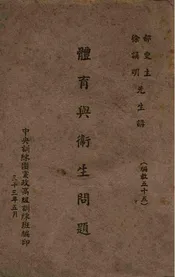 郝更生
徐誦明
先生講
體育與衛生問題
中央訓練團黨政高級訓練班編印
三十三年五月